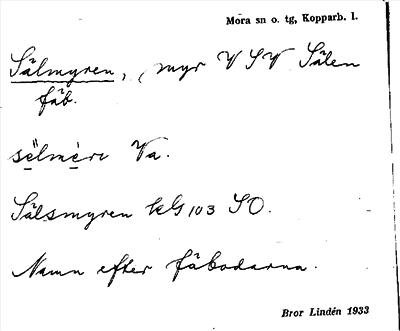 Mora sn o. tg, Kopparb. l.
Sälmyren, myr V S V Sälen
fäb.
Va.
Sälsmyren kG 103 SO.
Namn efter fäbodarna.
Bror Lindén 1933